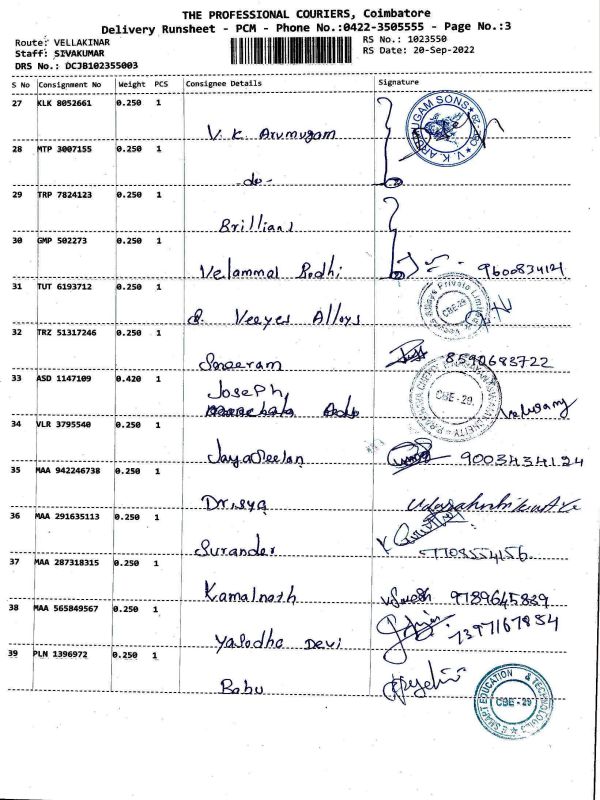 THE PROFESSIONAL COURIERS, Coimbatore
Delivery Runsheet - PCM - Phone No.:0422-3505555 - Page No.:3
Route: VELLAKINAR
RS No.: 1023550
Staff: SIVAKUMAR
RS Date: 20-Sep-2022
DRS No.: DCJB102355003
S No Consignment No Weight PCS Consignee Details Signature
27 KLK 8052661 0.250 1
V. K. Arumugam
28 MTP 3007155 0.250 1
-do-
29 TRP 7824123 0.250 1
Brilliant
30 GMP 502273 0.250 1
Velammal Bodhi 9600834124
31 TUT 6193712 0.250 1
Veeyes Alloys
32 TRZ 51317246 0.250 1
Sreeram 8590683722
33 ASD 1147109 0.420 1
Joseph
34 VLR 3795540 0.250 1
CBE - 29
Jayaseelan 9003434124
35 MAA 942246738 0.250 1
Drisya
36 MAA 291635113 0.250 1
Surander 7708554156
37 MAA 287318315 0.250 1
Kamalnath 9789645839
38 MAA 565849567 0.250 1
Yasodha Devi 7397167854
39 PLN 1396972 0.250 1
Babu
E SMART EDUCATION & TECHNOLOGIES
CBE - 29